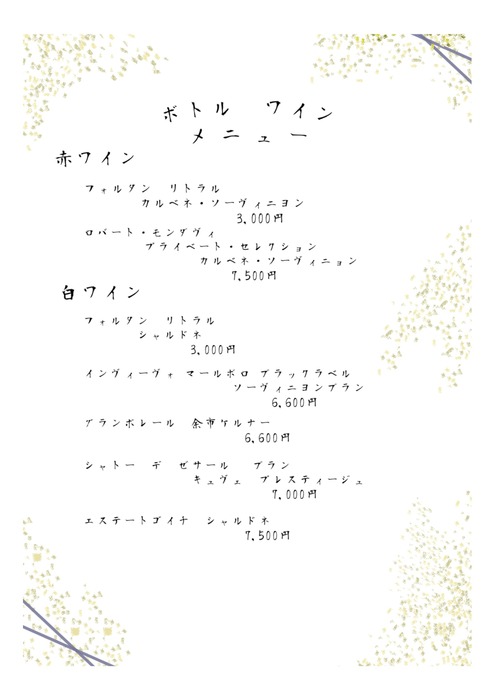 ボトル ワイン
メニュー
赤ワイン
フォルタン リトラル
カルベネ・ソーヴィニヨン
3,000円
ロバート・モンダヴィ
プライベート・セレクション
カルベネ・ソーヴィニョン
7,500円
白ワイン
フォルタン リトラル
シャルドネ
3,000円
インヴィーヴォ マールボロ ブラックラベル
ソーヴィニヨンブラン
6,600円
グランポレール 余市ケルナー
6,600円
シャトー デ ゼサール ブラン
キュヴェ プレスティージュ
7,000円
エステートゴイナ シャルドネ
7,500円